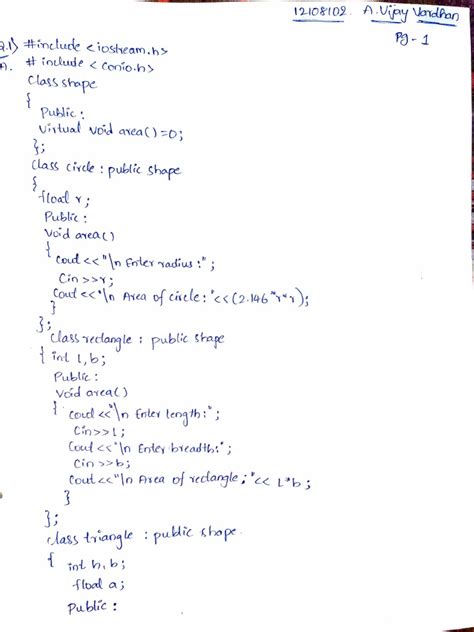 12108102. A.Vijay Vardhan
Pg-1
Q.1) #include <iostream.h>
A. # include < conio.h>
Class shape
{
Public :
virtual void area()=0;
};
Class circle : public shape
{
float r;
Public :
Void area()
{
Cout <<"\n Enter radius:";
Cin>>r;
Cout<<"\n Area of circle:"<<(2.146*r*r);
}
};
Class rectangle : public shape
{ int l,b;
Public :
Void area()
{ Cout <<"\n Enter length:";
Cin>>l;
Cout<<"\n Enter breadth:";
Cin>>b;
Cout<<"\n Area of rectangle;"<< l*b;
}
};
class triangle : public shape.
{ int h,b;
float a;
Public :